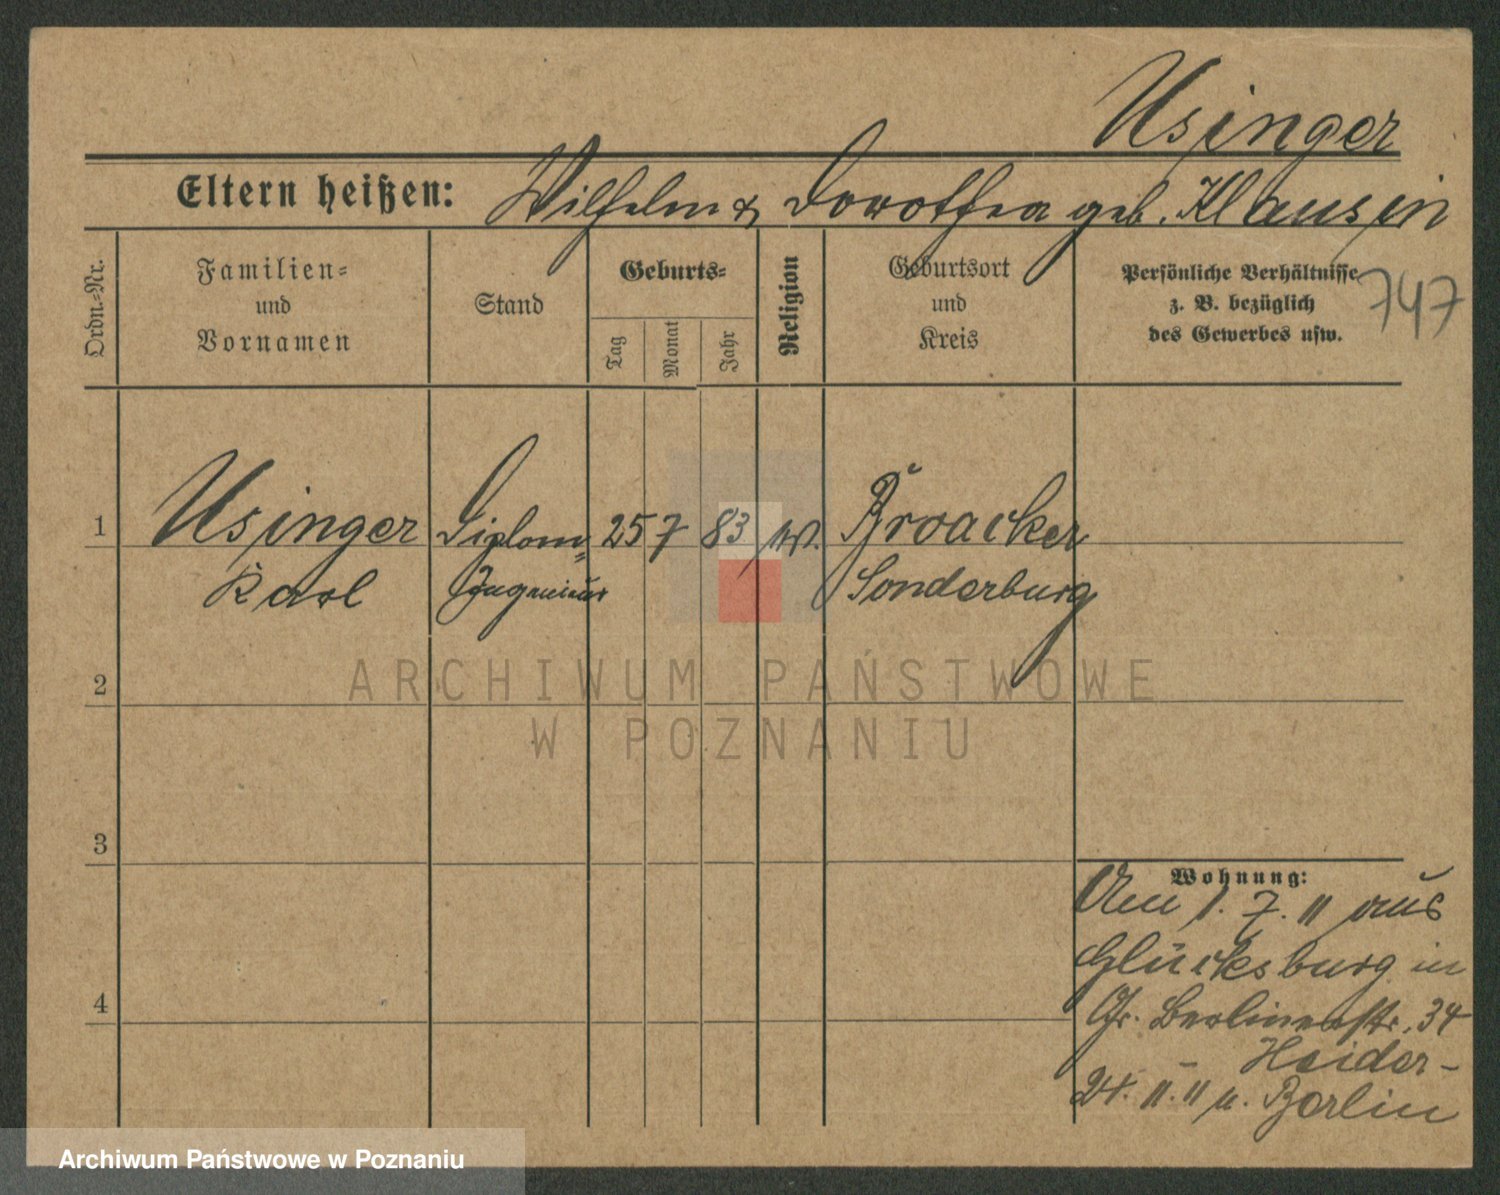 Usinger
Eltern heißen: Wilhelm & Dorothea geb. Klausin
Ordn.=Nr.
Familien=
und
Vornamen
Stand
Geburts=
Tag
Monat
Jahr
Religion
Geburtsort
und
Kreis
Persönliche Verhältnisse
z. B. bezüglich
des Gewerbes usw.
747
1
Usinger
Karl
Diplom=
Ingenieur
25 7 83
Broacker
Sonderburg
2
3
4
Wohnung:
Am 1. 7. 11 aus
Glücksburg in
Gr. Berlinerstr. 34
Heider-
24. 11. 11 n. Berlin
ARCHIWUM PAŃSTWOWE
W POZNANIU
Archiwum Państwowe w Poznaniu